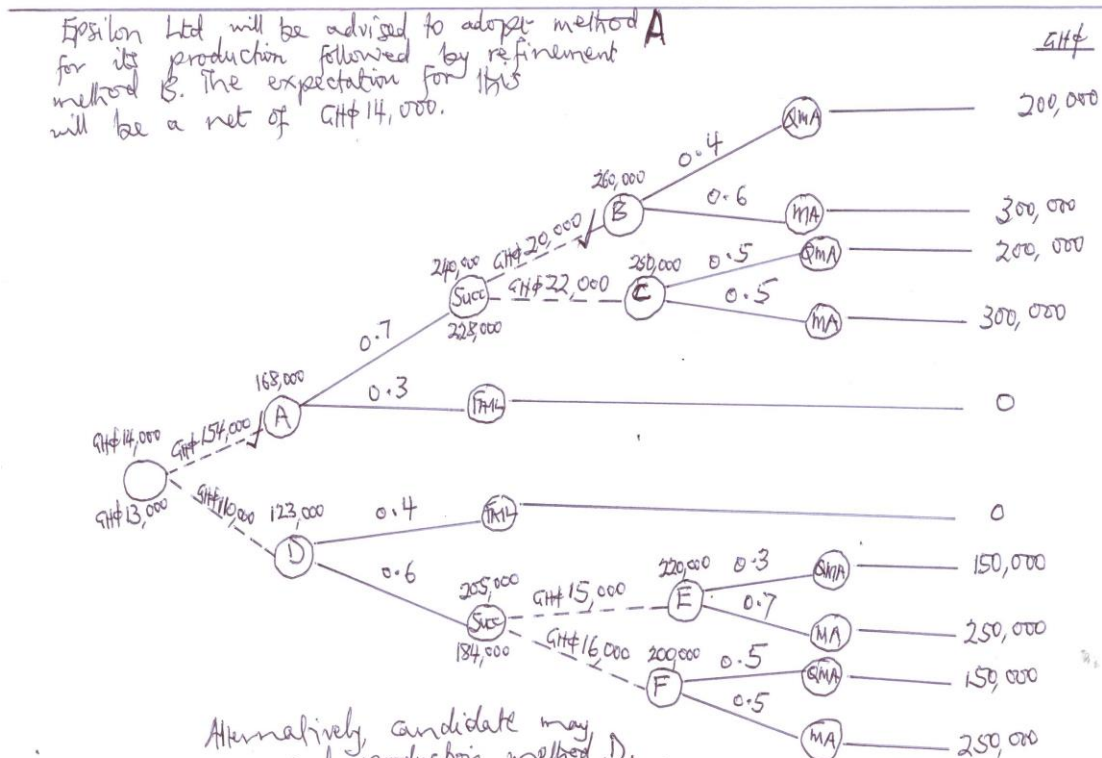 Epsilon Ltd will be advised to adopt method A
for its production followed by refinement
method B. The expectation for this
will be a net of GH¢14,000.
GH¢
QMA 200,000
0.4
260,000
B
0.6
MA 300,000
GH¢20,000
240,000
Succ
228,000
GH¢22,000
250,000
C
0.5
QMA 200,000
0.5
MA 300,000
0.7
168,000
A
0.3
FAIL 0
GH¢154,000
GH¢14,000
GH¢13,000
GH¢110,000
123,000
D
0.4
FAIL 0
0.6
205,000
Succ
184,000
GH¢15,000
220,000
E
0.3
QMA 150,000
0.7
MA 250,000
GH¢16,000
200,000
F
0.5
QMA 150,000
0.5
MA 250,000
Alternatively, candidate may
production method D.